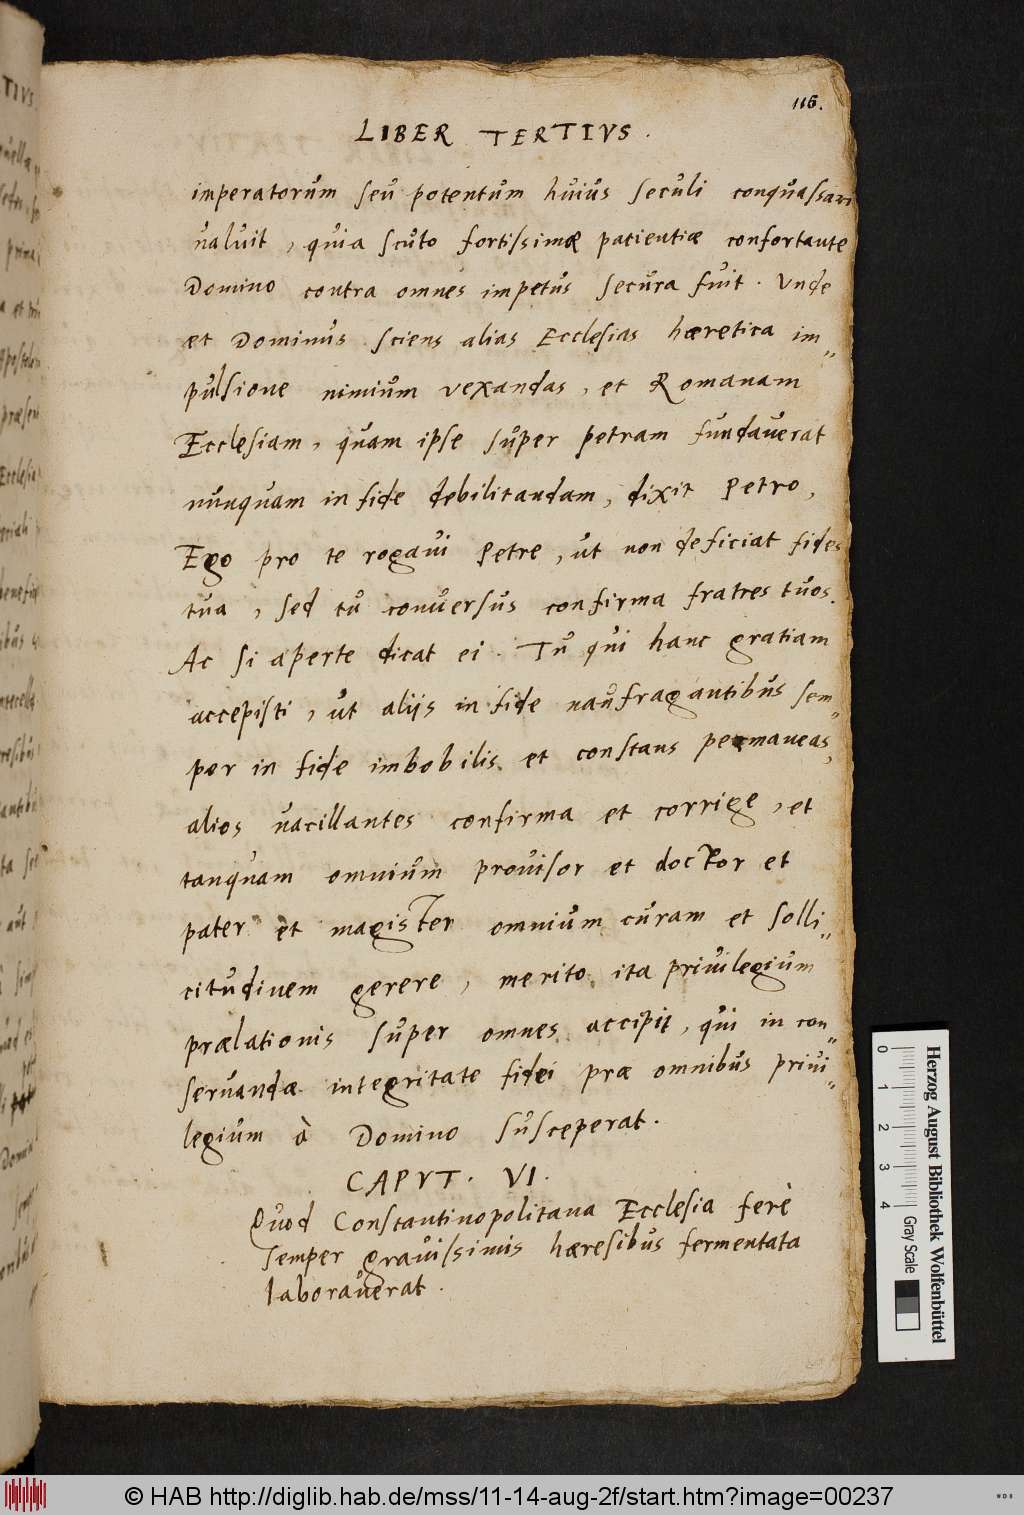 116.
LIBER TERTIVS.
imperatorum seu potentum huius seculi conquassari
ualuit, quia scuto fortissimæ patientiæ confortante
Domino contra omnes impetus secura fuit. Vnde
et Dominus sciens alias Ecclesias hæretica im„
pulsione nimium vexandas, et Romanam
Ecclesiam, quam ipse super petram fundauerat
nunquam in fide debilitandam, dixit Petro,
Ego pro te rogaui Petre, ut non deficiat fides
tua, sed tu conuersus confirma fratres tuos.
Ac si aperte dicat ei. Tu qui hanc gratiam
accepisti, ut alijs in fide naufragantibus sem„
per in fide imbobilis et constans permaneas,
alios uacillantes confirma et corrige, et
tanquam omnium prouisor et doctor et
pater et magister omnium curam et solli„
citudinem gerere, merito ita priuilegium
prælationis super omnes accipit, qui in con„
seruanda integritate fidei præ omnibus priui„
legium à Domino susceperat.
CAPVT. VI.
Quod Constantinopolitana Ecclesia ferè
semper grauissimis hæresibus fermentata
laborauerat.
TIVS
Ecclesia
Herzog August Bibliothek Wolfenbüttel
0 1 2 3 4 Gray Scale
© HAB http://diglib.hab.de/mss/11-14-aug-2f/start.htm?image=00237